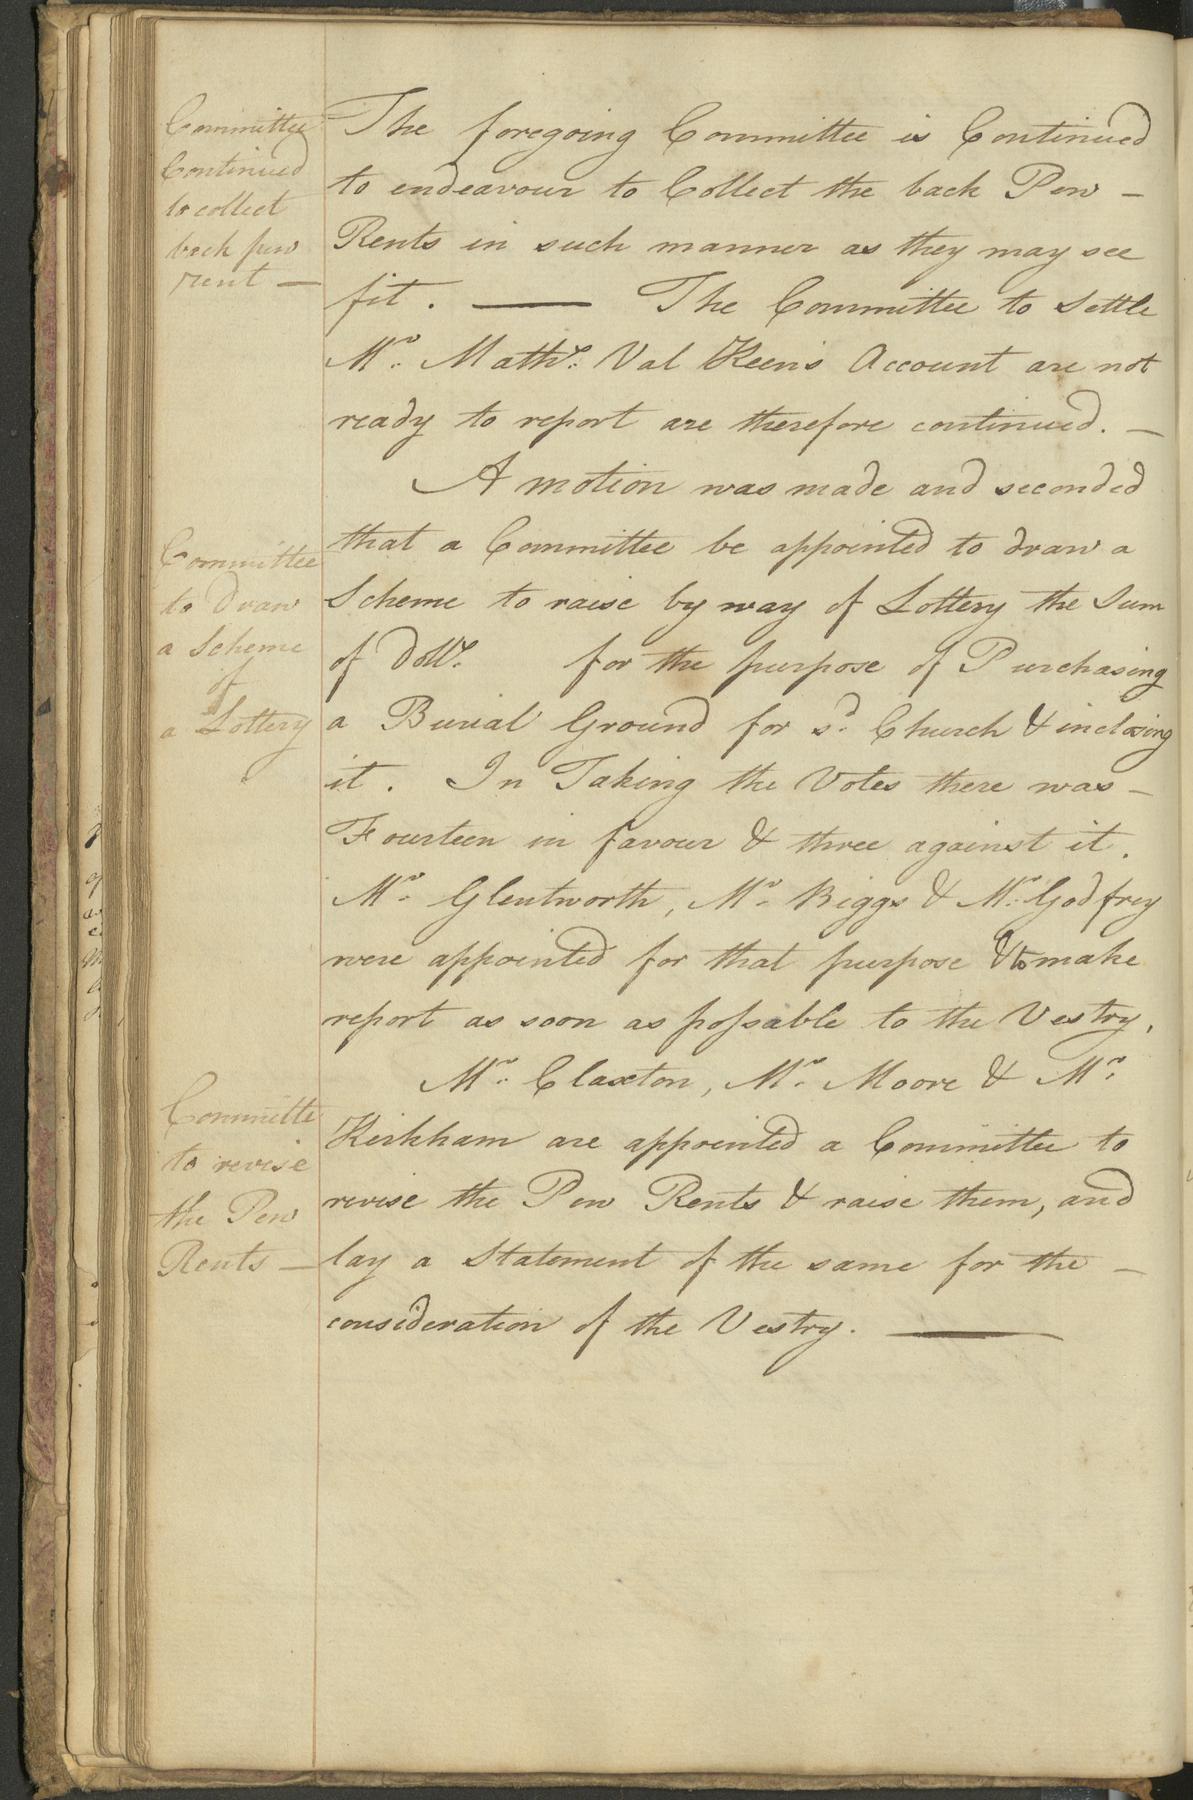 Committee
Continued
to collect
back pew
rent —
The foregoing Committee is Continued
to endeavour to Collect the back Pew –
Rents in such manner as they may see
fit. —— The Committee to Settle
Mr. Mathw. Val Keen's Account are not
ready to report are therefore continued. –
A motion was made and seconded
Committee
to Draw
a Scheme
of
a Lottery
that a Committee be appointed to draw a
Scheme to raise by way of Lottery the Sum
of Dolls. for the purpose of Purchasing
a Burial Ground for sd. Church & inclosing
it. In Taking the Votes there was –
Fourteen in favour & three against it.
Mr. Glentworth, Mr. Biggs & Mr. Godfrey
were appointed for that purpose & to make
report as soon as possable to the Vestry.
Mr. Claxton, Mr. Moore & Mr.
Committe
to revise
the Pew
Rents —
Kirkham are appointed a Committee to
revise the Pew Rents & raise them, and
lay a Statement of the same for the –
consideration of the Vestry. ——